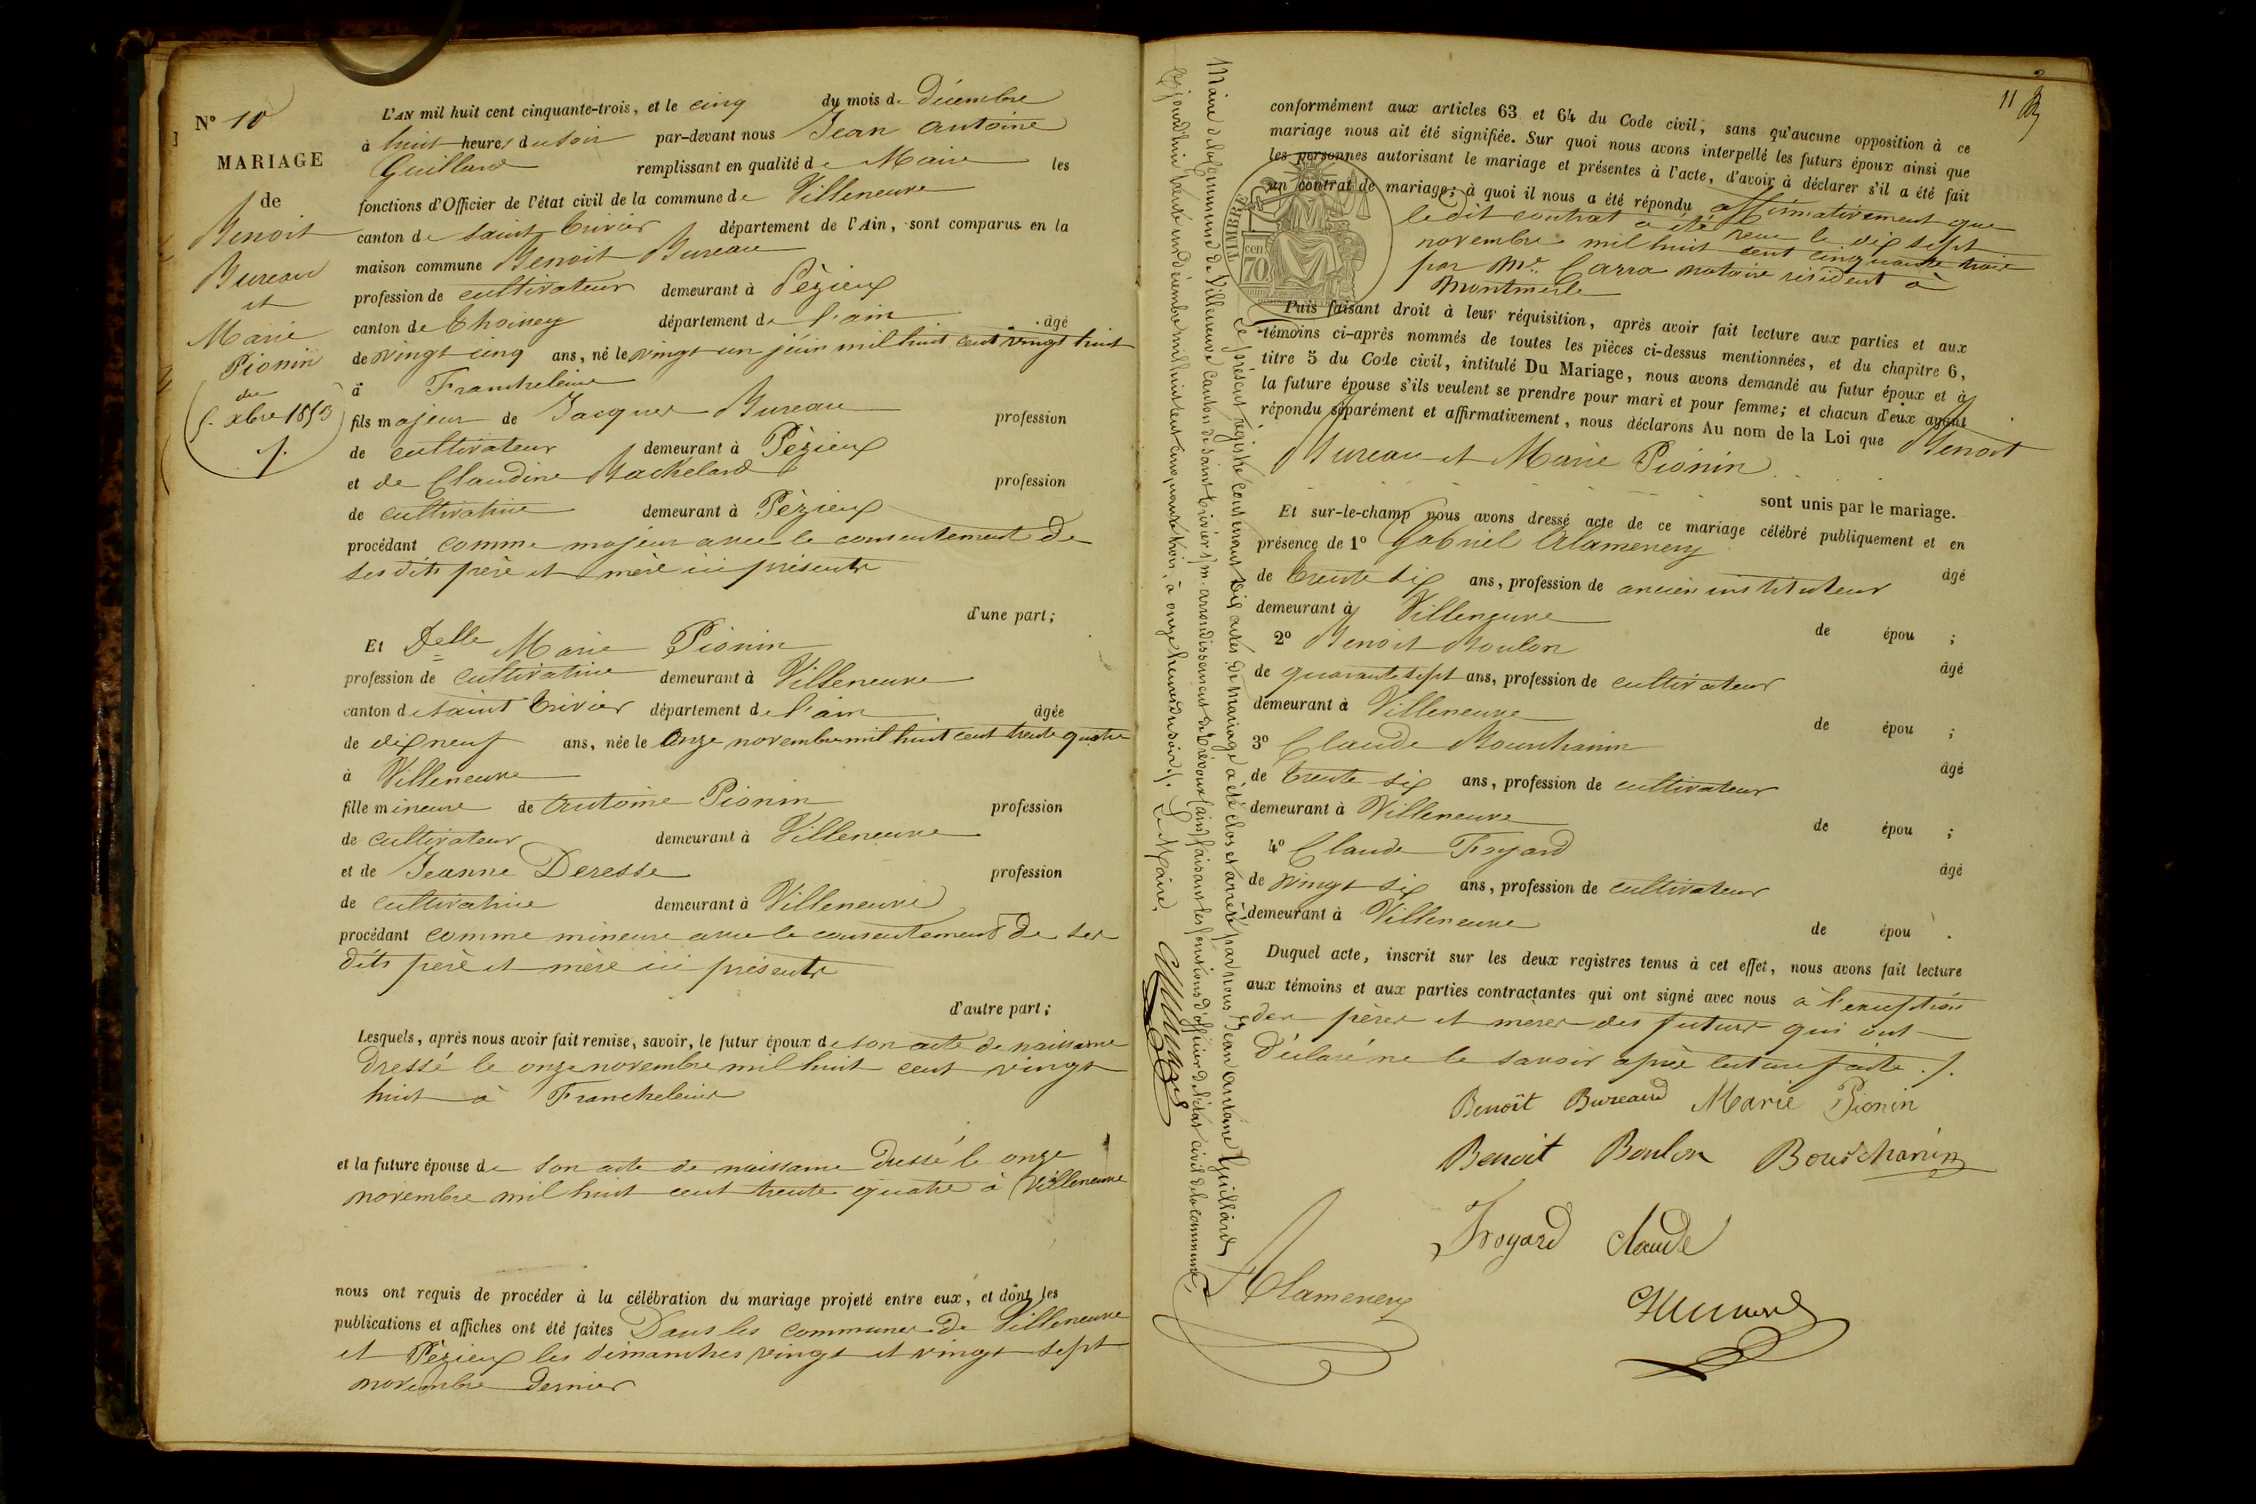 N° 10
MARIAGE
de
Benoit
Bureau
et
Marie
Pionin
du
5. Xbre 1853
L'AN mil huit cent cinquante-trois, et le cinq du mois de Décembre
à huit heures du soir par-devant nous Jean Antoine
Guillard remplissant en qualité de Maire les
fonctions d'Officier de l'état civil de la commune de Villeneuve
canton de saint Trivier département de l'Ain, sont comparus en la
maison commune Benoit Bureau
profession de cultivateur demeurant à Pèzieux
canton de Thoissey département de l'ain âgé
de vingt cinq ans, né le vingt un juin mil huit cent vingt huit
à Francheleins
fils majeur de Jacques Bureau profession
de cultivateur demeurant à Pèzieux
et de Claudine Bachelard profession
de cultivatrice demeurant à Pèzieux
procédant comme majeur avec le consentement de
ses dits père et mère ici présents
d'une part;
Et Delle Marie Pionin
profession de cultivatrice demeurant à Villeneuve
canton de saint Trivier département de l'ain âgée
de dix neuf ans, née le onze novembre mil huit cent trente quatre
à Villeneuve
fille mineure de Antoine Pionin profession
de cultivateur demeurant à Villeneuve
et de Jeanne Deresse profession
de cultivatrice demeurant à Villeneuve
procédant comme mineure avec le consentement de ses
dits père et mère ici présents
d'autre part;
Lesquels, après nous avoir fait remise, savoir, le futur époux de son acte de naissance
dressé le onze novembre mil huit cent vingt
huit à Francheleins
et la future épouse de son acte de naissance dressé le onze
novembre mil huit cent trente quatre à Villeneuve
nous ont requis de procéder à la célébration du mariage projeté entre eux, et dont les
publications et affiches ont été faites Dans les communes de Villeneuve
et Pèzieux les dimanches vingt et vingt sept
novembre dernier
11
conformément aux articles 63 et 64 du Code civil, sans qu'aucune opposition à ce
mariage nous ait été signifiée. Sur quoi nous avons interpellé les futurs époux ainsi que
les personnes autorisant le mariage et présentes à l'acte, d'avoir à déclarer s'il a été fait
un contrat de mariage; à quoi il nous a été répondu affirmativement que
le dit contrat a été reçu le dix sept
novembre mil huit cent cinquante trois
par Me. Carra notaire résident à
Montmerle
TIMBRE
cen
70
Puis faisant droit à leur réquisition, après avoir fait lecture aux parties et aux
témoins ci-après nommés de toutes les pièces ci-dessus mentionnées, et du chapitre 6,
titre 5 du Code civil, intitulé Du Mariage, nous avons demandé au futur époux et à
la future épouse s'ils veulent se prendre pour mari et pour femme; et chacun d'eux ayant
répondu séparément et affirmativement, nous déclarons Au nom de la Loi que Benoit
Bureau et Marie Pionin
sont unis par le mariage.
Et sur-le-champ nous avons dressé acte de ce mariage célébré publiquement et en
présence de 1° Gabriel Alamenery âgé
de trente six ans, profession de ancien instituteur
demeurant à Villeneuve de épou ;
2° Benoit Boulon âgé
de quarante sept ans, profession de cultivateur
demeurant à Villeneuve de épou ;
3° Claude Bourchanin âgé
de trente six ans, profession de cultivateur
demeurant à Villeneuve de épou ;
4° Claude Froyard âgé
de vingt six ans, profession de cultivateur
demeurant à Villeneuve de épou .
Duquel acte, inscrit sur les deux registres tenus à cet effet, nous avons fait lecture
aux témoins et aux parties contractantes qui ont signé avec nous à l'exception
des pères et mères des futurs qui ont
déclaré ne le savoir après lecture faite ./.
Benoît Bureaud Marie Pionin
Benoit Boulon Bourchanin
Froyard Claude
Alamenery
Guillard
Le présent registre contenant dix actes de mariage a été clos et arrêté par nous Jean Antoine Guillard
Maire de la Commune de Villeneuve Canton de Saint Trivier s/m. arrondissement de Trévoux (ain) faisant les fonctions d'officier de l'état civil de la commune,
cejourd'hui trente un décembre mil huit cent cinquante trois, à onze heures du soir ./. Le Maire,
Guillard